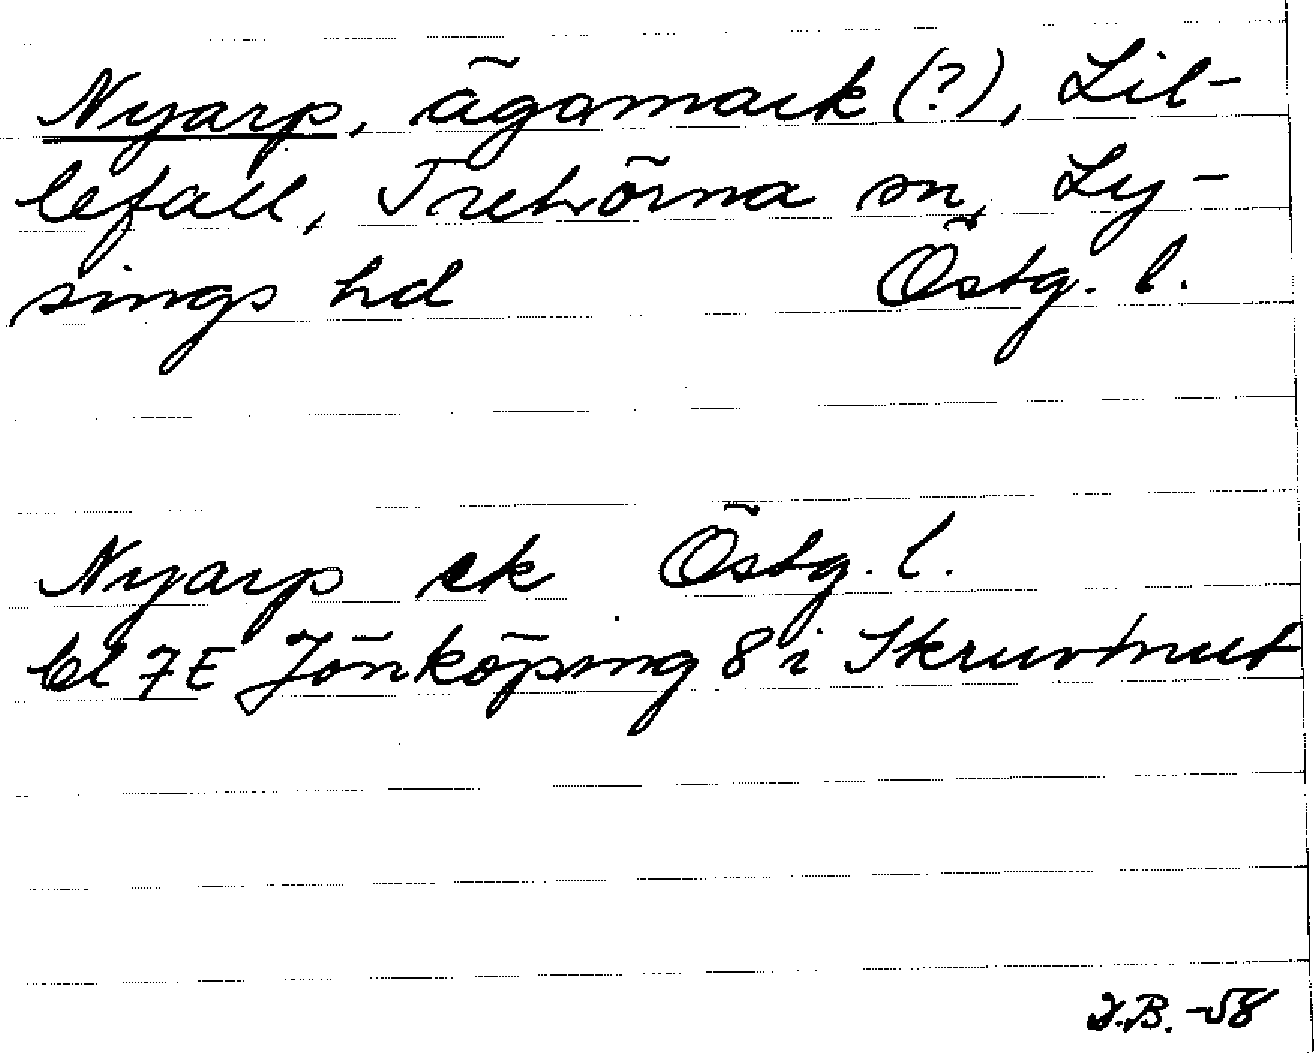 Nyarp, ägomark (?), Lil-
lefall, Trehörna sn, Ly-
sings hd Östg. l.
Nyarp ek Östg. l.
bl 7E Jönköping 8 i Skruvhult
J.B. -58